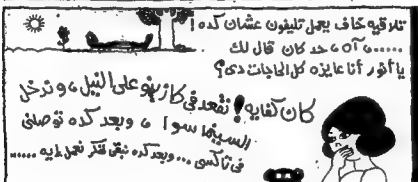 تلاقيه خاف يعمل تليفون عشان كده !
..... ، آه ، حد كان قال لك
يا أنور أنا عايزه كل الحاجات دى ؟
كان كفايه ! نقعد فى كازينو على النيل ، وندخل
السينما سوا ، وبعد كده توصلنى
فى تاكسى ... وبعد كده نبقى نفكر نعمل ايه .....